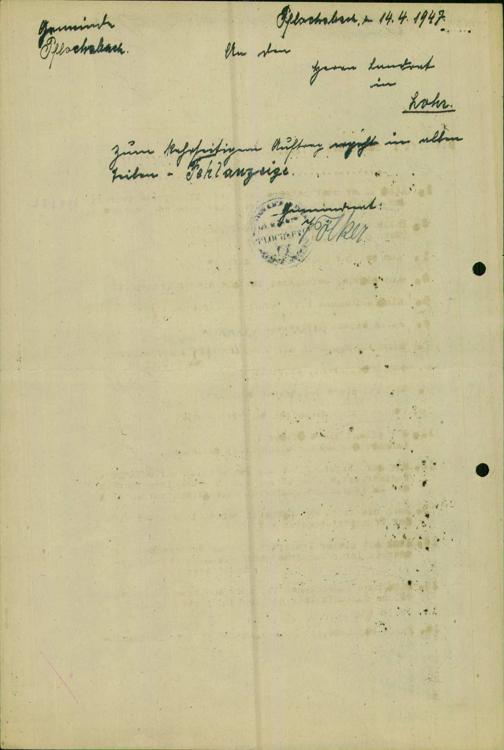 Gemeinde
Pflochsbach.
Pflochsbach, den 14.4.1947.
An den
Herrn Landrat
in
Lohr.
Zum Auftrag ergeht in allen
Teilen - Fehlanzeige.
Gemeinderat:
Völker